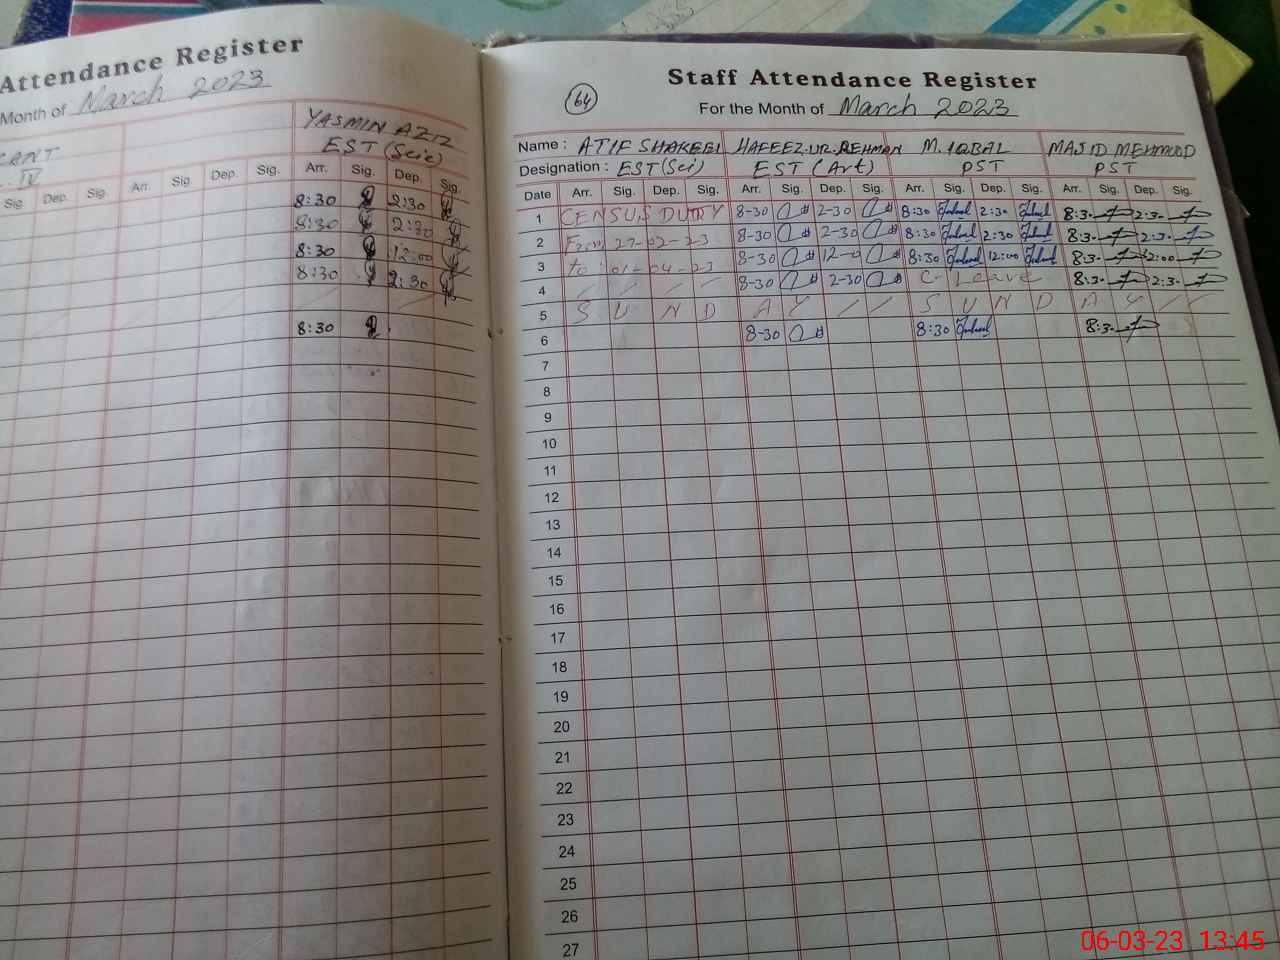 Attendance Register
Month of March 2023
YASMIN AZIZ
EST (Scie)
IV
Sig. Dep. Sig. Arr. Sig Dep. Sig. Arr. Sig. Dep. Sig.
8:30 2:30
8:30 2:30
8:30 12:00
8:30 2:30
8:30
64
Staff Attendance Register
For the Month of March 2023
Name : ATIF SHAKEEL HAFEEZ.UR.REHMAN M. IQBAL MAJID MEHMOOD
Designation : EST (Sci) EST (Art) PST PST
Date Arr. Sig. Dep. Sig. Arr. Sig. Dep. Sig. Arr. Sig. Dep. Sig. Arr. Sig. Dep. Sig.
1 CENSUS DUTY 8-30 2-30 8:30 2:30 8:3- 2:3-
2 From 27-02-23 8-30 2-30 8:30 2:30 8:3- 2:3-
3 to: 01-04-23 8-30 12-0 8:30 12:00 8:3- 12:00
4 8-30 2-30 C- Leave 8:3- 2:3-
5 S U N D A Y S U N D A Y
6 8-30 8:30 8:3-
7
8
9
10
11
12
13
14
15
16
17
18
19
20
21
22
23
24
25
26
27
06-03-23 13:45